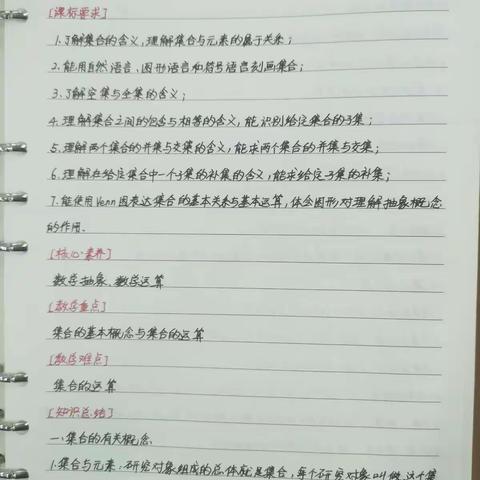 [课标要求]
1.了解集合的含义,理解集合与元素的属于关系;
2.能用自然语言、图形语言和符号语言刻画集合;
3.了解空集与全集的含义;
4.理解集合之间的包含与相等的含义,能识别给定集合的子集;
5.理解两个集合的并集与交集的含义,能求两个集合的并集与交集;
6.理解在给定集合中一个子集的补集的含义,能求给定子集的补集;
7.能使用Venn图表达集合的基本关系与基本运算,体会图形对理解抽象概念
的作用。
[核心素养]
数学抽象、数学运算
[教学重点]
集合的基本概念与集合的运算
[教学难点]
集合的运算
[知识总结]
一、集合的有关概念
1.集合与元素:研究对象组成的总体就是集合,每个研究对象叫做这个集